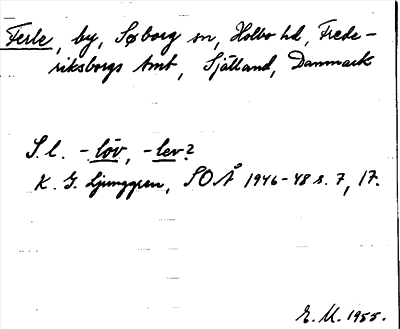 Ferle, by, Søborg sn, Holbo hd, Frede-
riksborgs Amt, Själland, Danmark
S.l. -löv, -lev?
K. G. Ljunggren, SOÅ 1946-48 s. 7, 17.
E. M. 1955.